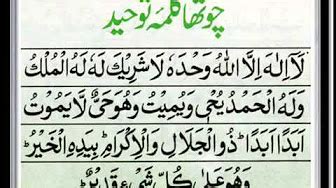 چوتھا کلمہ توحید
لَآ اِلٰهَ اِلَّا اللّٰهُ وَحْدَهٗ لَا شَرِيْكَ لَهٗ لَهُ الْمُلْكُ
وَلَهُ الْحَمْدُ يُحْيٖ وَيُمِيْتُ وَهُوَ حَيٌّ لَّا يَمُوْتُ
اَبَدًا اَبَدًا ؕ ذُو الْجَلَالِ وَالْاِكْرَامِ ؕ بِيَدِهِ الْخَيْرُ ؕ
وَهُوَ عَلٰى كُلِّ شَیْءٍ قَدِيْرٌ ؕ